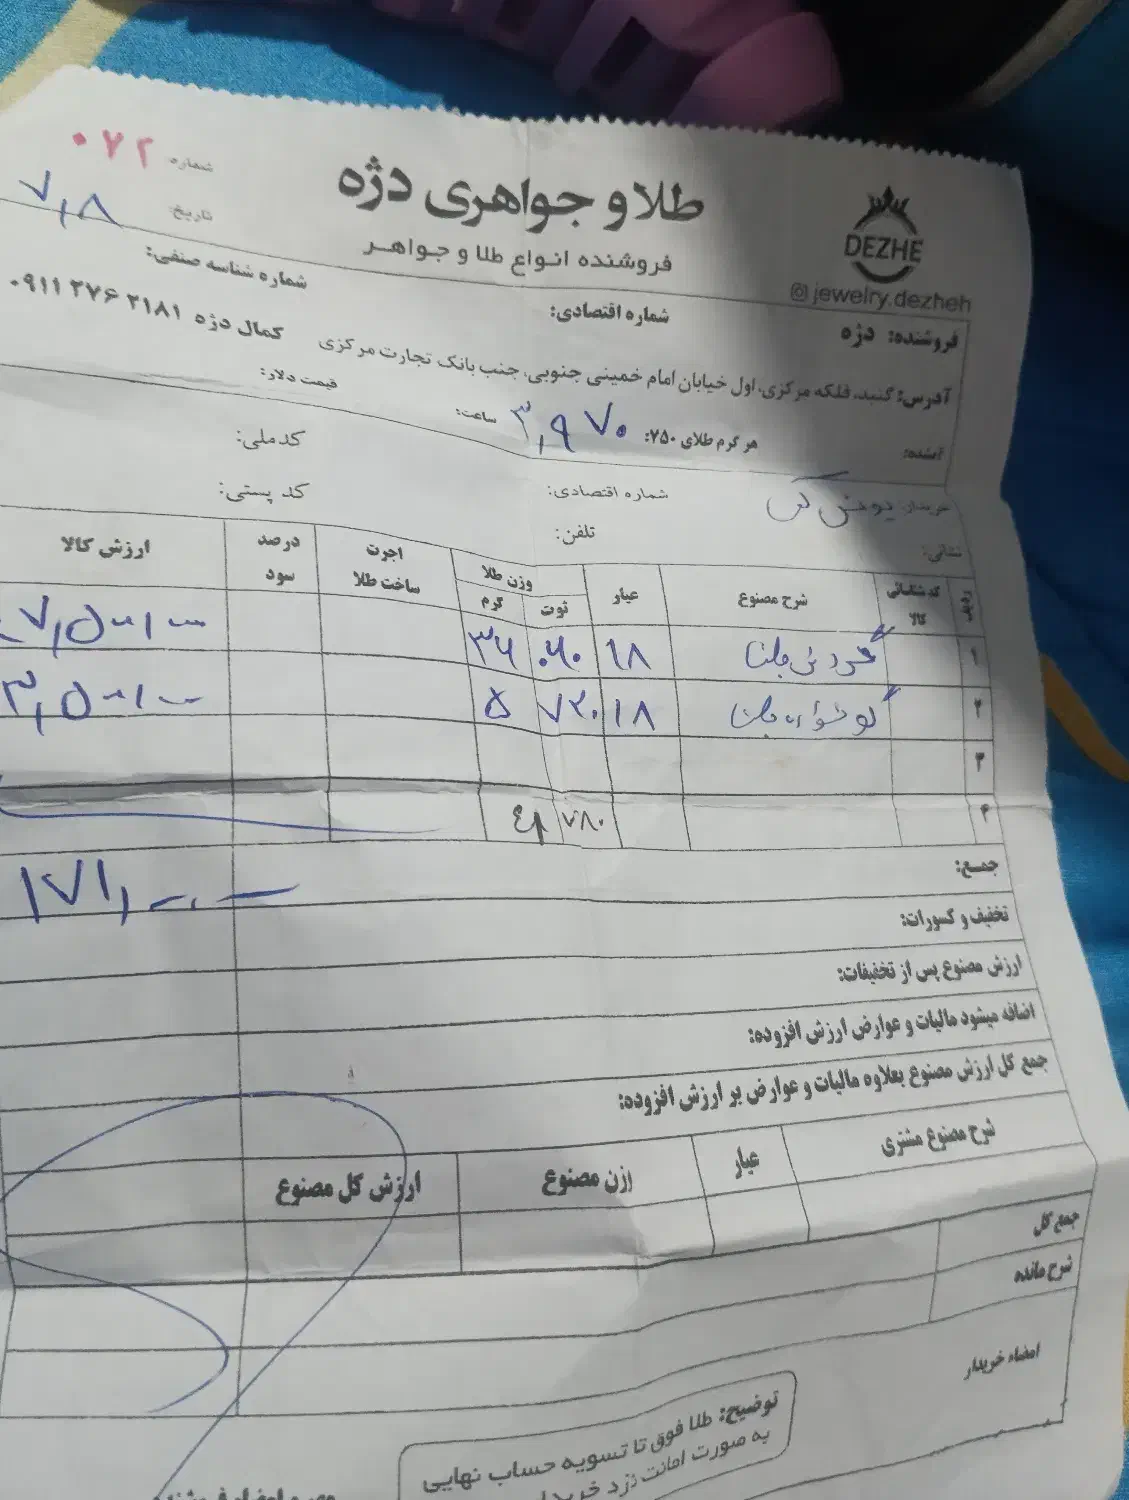 طلا و جواهری دژه
فروشنده انواع طلا و جواهر
DEZHE
jewelry.dezheh
شماره: ۰۷۲
تاریخ: ۷,۸
فروشنده: دژه
شماره اقتصادی:
شماره شناسه صنفی:
آدرس: گنبد، فلکه مرکزی، اول خیابان امام خمینی جنوبی، جنب بانک تجارت مرکزی
کمال دژه ۰۹۱۱ ۲۷۶ ۲۱۸۱
هر گرم طلای ۷۵۰: ۳,۹۷۰
ساعت:
قیمت دلار:
خریدار:
شماره اقتصادی:
کد ملی:
نشانی:
تلفن:
کد پستی:
ردیف کد شناسائی کالا شرح مصنوع عیار وزن طلا اجرت ساخت طلا درصد سود ارزش کالا
ثوت گرم
۱ ۱۸ ۰۶۰ ۳۶
۲ گوشواره ۱۸ ۷۲۰ ۵
۳
۴ ۷۸۰ ۴۱
جمع: ۱۷۱,۰۰۰
تخفیف و کسورات:
ارزش مصنوع پس از تخفیفات:
اضافه میشود مالیات و عوارض ارزش افزوده:
جمع کل ارزش مصنوع بعلاوه مالیات و عوارض بر ارزش افزوده:
شرح مصنوع مشتری عیار وزن مصنوع ارزش کل مصنوع
جمع کل
شرح مانده
امضاء خریدار
توضیح: طلا فوق تا تسویه حساب نهایی
به صورت امانت نزد